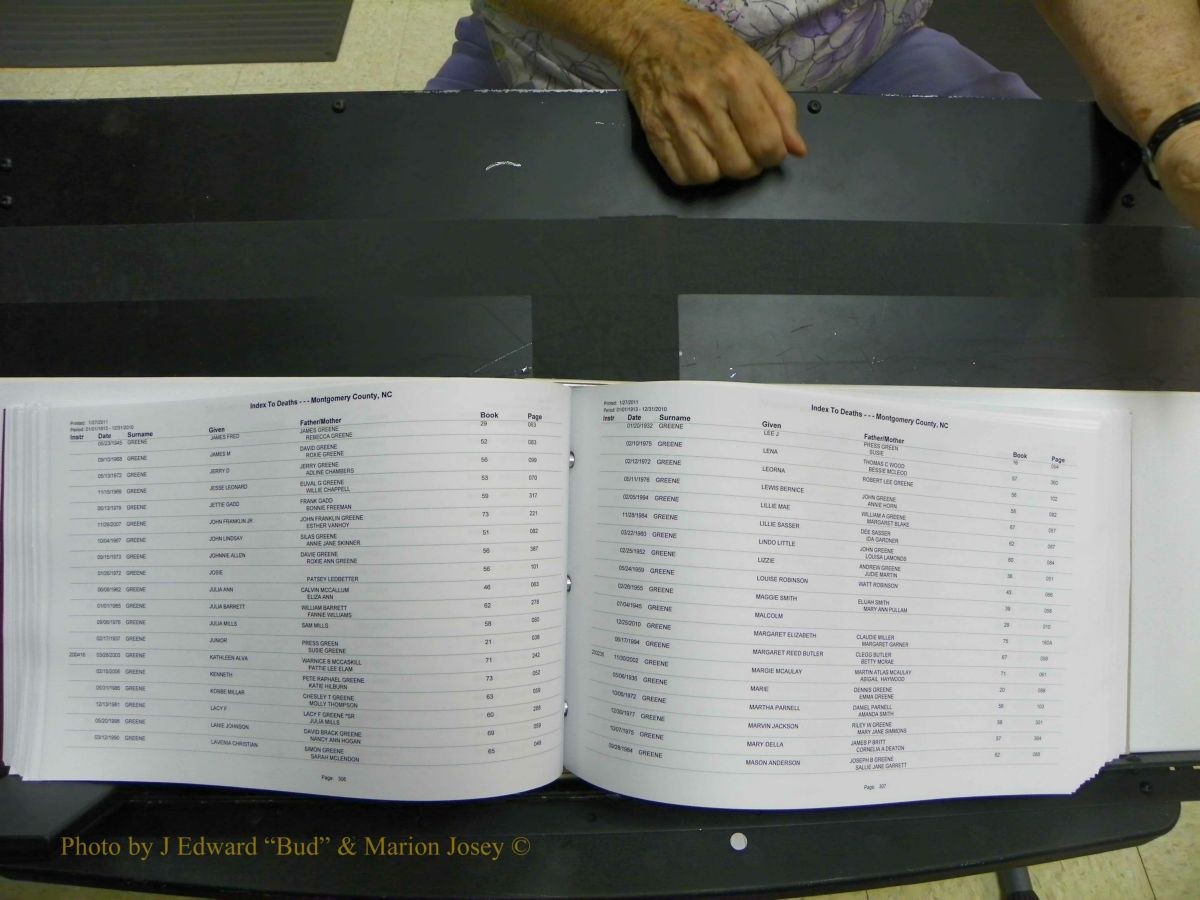 Index To Deaths - - - Montgomery County, NC
Printed: 1/27/2011
Period: 01/01/1913 - 12/31/2010
Instr Date Surname Given Father/Mother Book Page
05/23/1945 GREENE JAMES FRED JAMES GREENE 29 063
REBECCA GREENE
GREENE JAMES M DAVID GREENE 52 083
ROXIE GREENE
05/13/1972 GREENE JERRY D JERRY GREENE 56 099
ADLINE CHAMBERS
GREENE JESSE LEONARD EUVAL G GREENE 53 070
WILLIE CHAPPELL
GREENE JETTIE GADD FRANK GADD 59 317
BONNIE FREEMAN
11/26/2007 GREENE JOHN FRANKLIN JR JOHN FRANKLIN GREENE 73 221
ESTHER VANHOY
10/04/1967 GREENE JOHN LINDSAY SILAS GREENE 51 082
ANNIE JANE SKINNER
09/15/1973 GREENE JOHNNIE ALLEN DAVIE GREENE 56 387
ROXIE ANN GREENE
01/26/1972 GREENE JOSIE 56 101
PATSEY LEDBETTER
06/06/1962 GREENE JULIA ANN CALVIN MCCALLUM 46 063
ELIZA ANN
01/01/1985 GREENE JULIA BARRETT WILLIAM BARRETT 62 278
FANNIE WILLIAMS
09/06/1976 GREENE JULIA MILLS SAM MILLS 58 060
02/17/1937 GREENE JUNIOR PRESS GREEN 21 038
SUSIE GREENE
200416 03/28/2003 GREENE KATHLEEN ALVA WARNICE B MCCASKILL 71 242
PATTIE LEE ELAM
02/15/2006 GREENE KENNETH PETE RAPHAEL GREENE 73 052
KATIE HILBURN
GREENE KOBBE MILLAR CHESLEY T GREENE 63 059
MOLLY THOMPSON
12/13/1981 GREENE LACY F LACY F GREENE *SR 60 288
JULIA MILLS
05/20/1998 GREENE LANIE JOHNSON DAVID BRACK GREENE 69 059
NANCY ANN HOGAN
03/12/1990 GREENE LAVENIA CHRISTIAN SIMON GREENE 65 049
SARAH MCLENDON
Page: 306
Index To Deaths - - - Montgomery County, NC
Printed: 1/27/2011
Period: 01/01/1913 - 12/31/2010
Instr Date Surname Given Father/Mother Book Page
01/20/1932 GREENE LEE J PRESS GREEN 16 054
SUSIE
02/10/1975 GREENE LENA THOMAS C WOOD 57 360
BESSIE MCLEOD
02/12/1972 GREENE LEORNA ROBERT LEE GREENE 56 102
05/11/1976 GREENE LEWIS BERNICE JOHN GREENE 58 082
ANNIE HORN
02/05/1994 GREENE LILLIE MAE WILLIAM A GREENE 67 057
MARGARET BLAKE
11/28/1984 GREENE LILLIE SASSER DEE SASSER 62 087
IDA GARDNER
03/22/1980 GREENE LINDO LITTLE JOHN GREENE 60 084
LOUISA LAMONDS
02/25/1952 GREENE LIZZIE ANDREW GREENE 36 051
JUDIE MARTIN
05/24/1959 GREENE LOUISE ROBINSON WATT ROBINSON 43 086
02/26/1955 GREENE MAGGIE SMITH ELIJAH SMITH 39 058
MARY ANN PULLAM
07/04/1945 GREENE MALCOLM 29 010
12/25/2010 GREENE MARGARET ELIZABETH CLAUDIE MILLER 75 160A
MARGARET GARNER
05/17/1994 GREENE MARGARET REED BUTLER CLEGG BUTLER 67 058
BETTY MCRAE
11/30/2002 GREENE MARGIE MCAULAY MARTIN ATLAS MCAULAY 71 061
ABIGAIL HAYWOOD
05/06/1936 GREENE MARIE DENNIS GREENE 20 088
EMMA GREENE
10/06/1972 GREENE MARTHA PARNELL DANIEL PARNELL 56 103
AMANDA SMITH
12/30/1977 GREENE MARVIN JACKSON RILEY W GREENE 58 301
MARY JANE SIMMONS
12/07/1975 GREENE MARY DELLA JAMES P BRITT 57 364
CORNELIA A DEATON
GREENE MASON ANDERSON JOSEPH B GREENE 62 060
SALLIE JANE GARRETT
Page: 307
Photo by J Edward “Bud” & Marion Josey ©